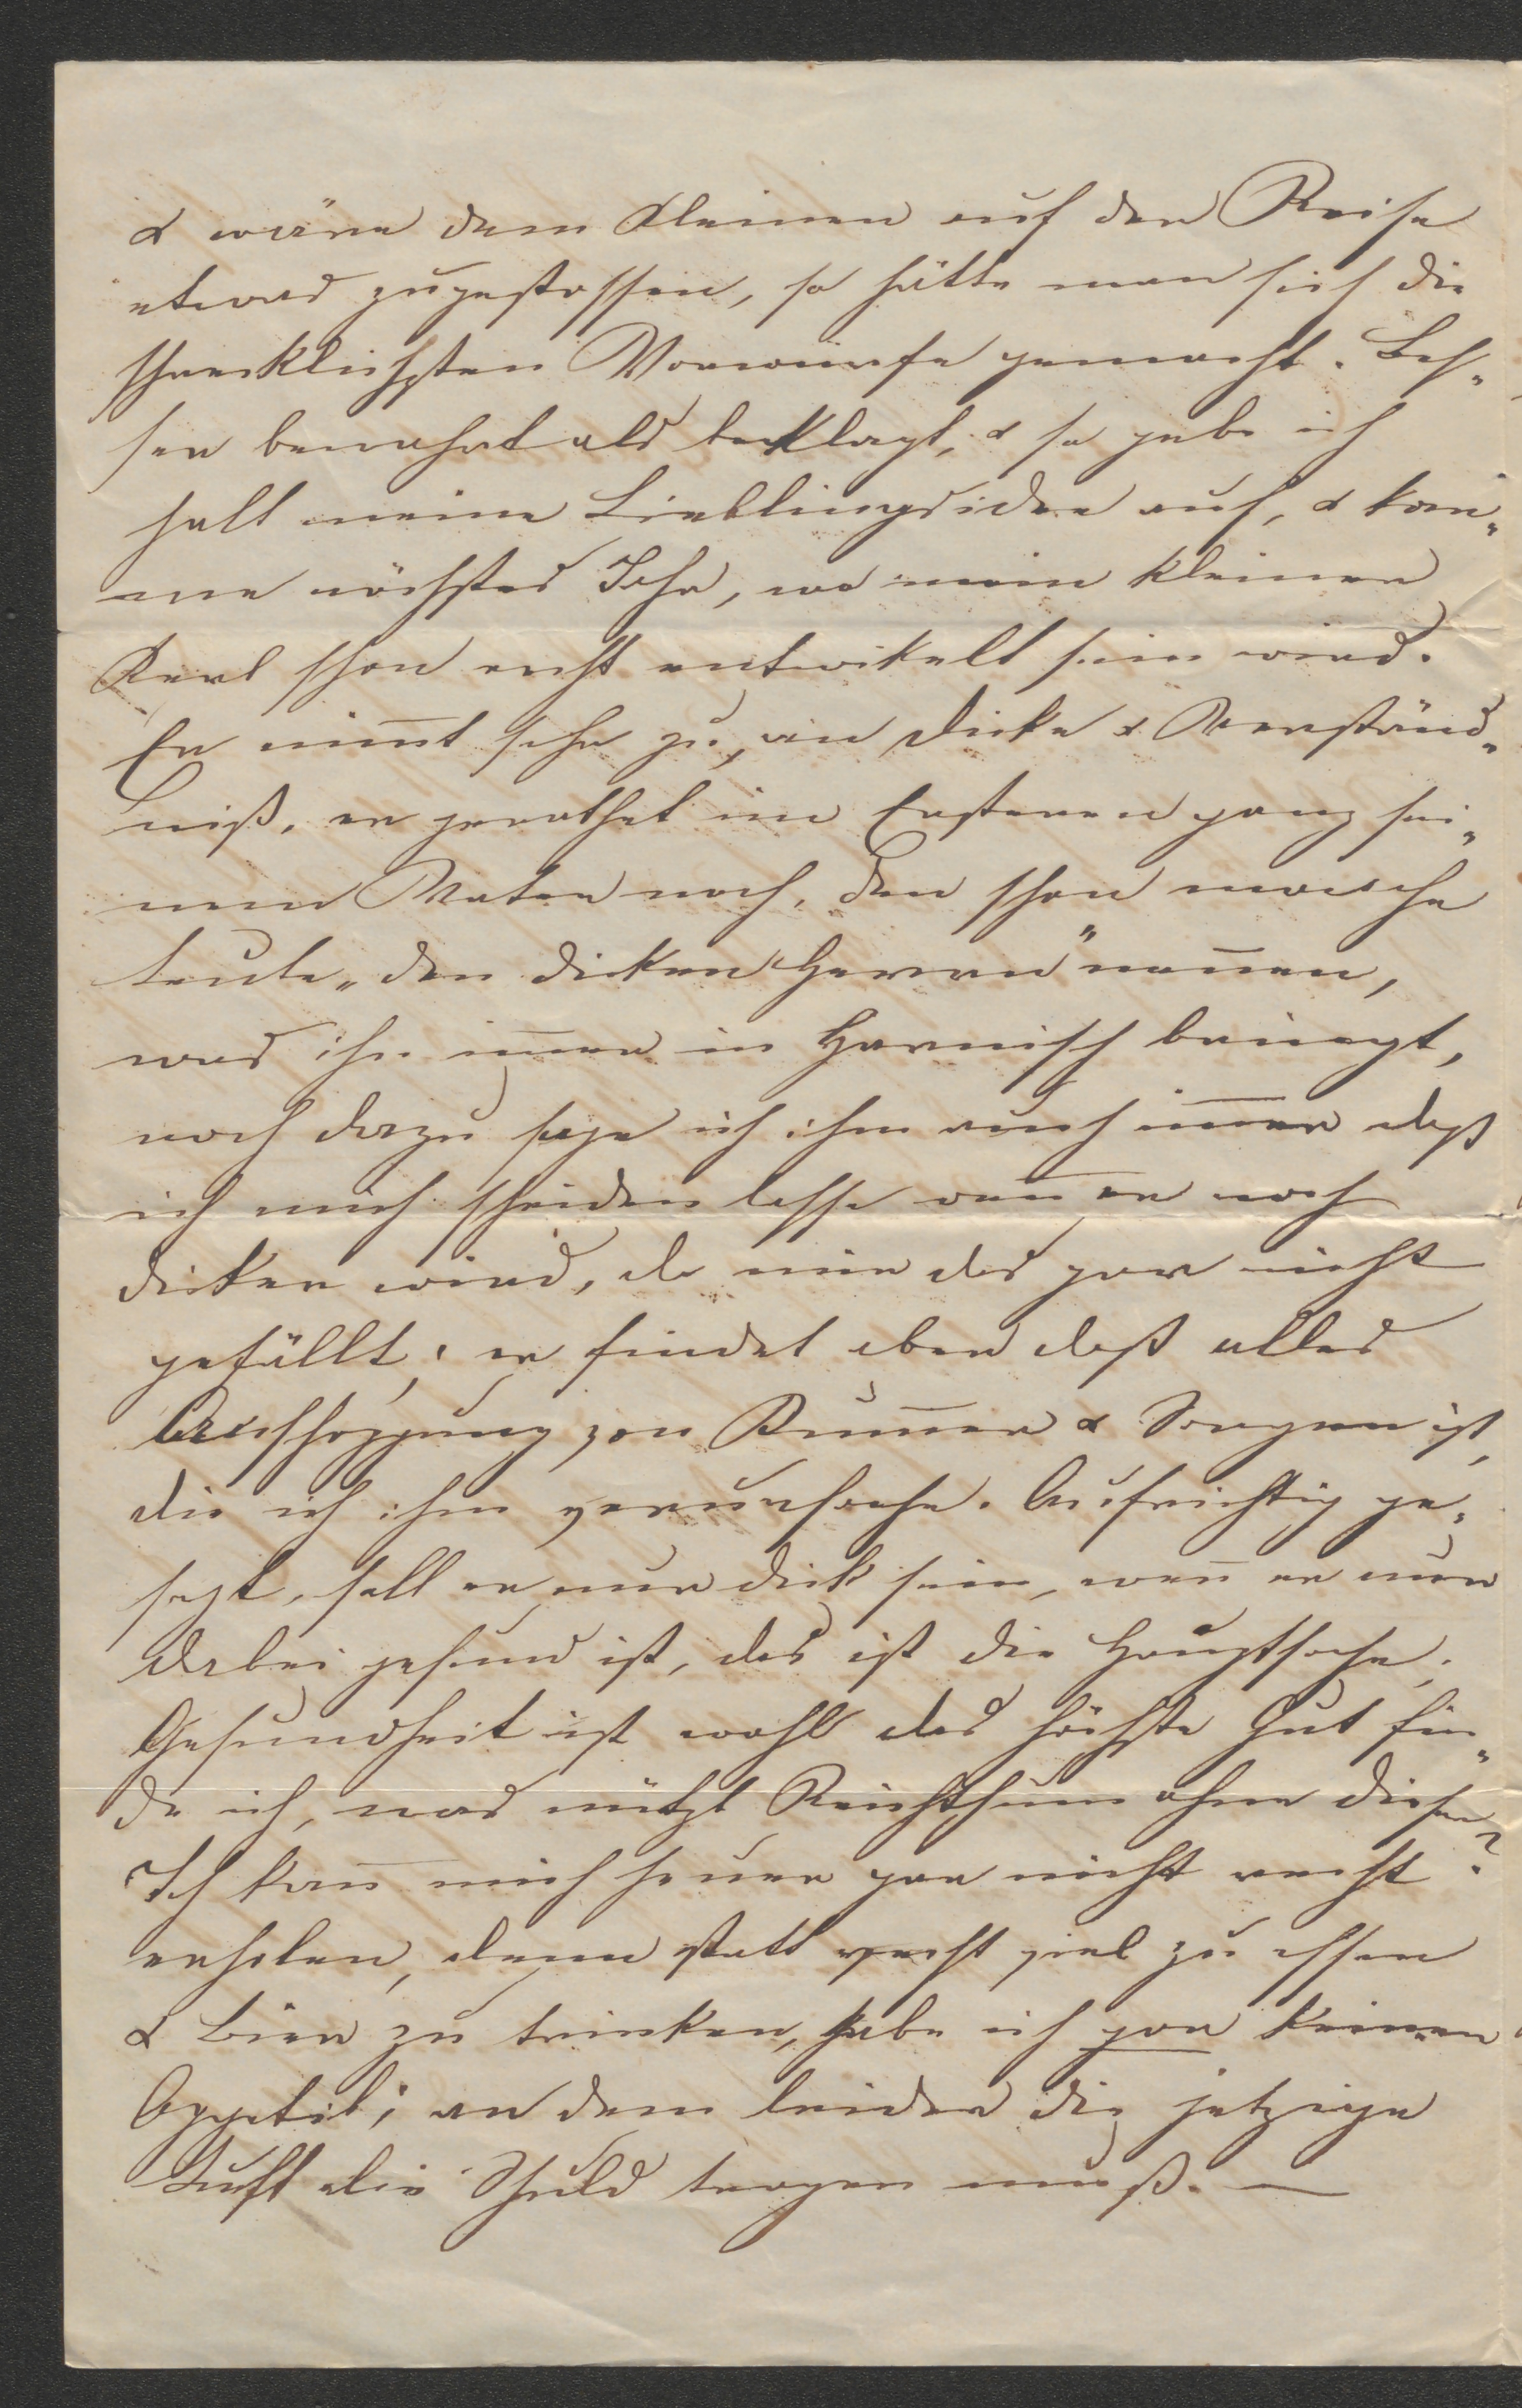 & wäre dem Kleinen auf der Reise
etwas zugestossen, so hätte man sich die
schrecklichsten Vorwürfe gemacht. Bes„
ser bewahrt als beklagt, & so gebe ich
halt meine Lieblingsidee auf, & kom„
me nächstes Jahr, wo mein kleiner
Kerl schon recht entwikelt sein wird.
Er nim̄t sehr zu, an Dicke & Verständ„
niß, er gerathet im Ersteren ganz sei„
nem Vater nach, den schon manche
Leute „den dicken Herren" nen̄en,
was ihn im̄er in Harnisch bringt,
noch dazu sage ich ihm auch im̄er daß
ich mich scheiden lasse wen̄ er noch
dicker wird, da mir das gar nicht
gefällt; er findet aber daß alles
Anschoppung von Kum̄er & Sorgen ist,
die ich ihm verursache. Aufrichtig ge„
sagt, soll er nur dick sein, wen̄ er nur
dabei gesund ist, das ist die Hauptsache,
Gesundheit ist wohl das höchste Gut fin„
de ich, was nützt Reichthum ohne dieser?
Ich kan̄ mich heuer gar nicht recht
erholen, denn statt recht viel zu essen
& Bier zu trinken, habe ich gar keinen
Appetit; an dem leider die jetzige
Luft die Schuld tragen muß. —